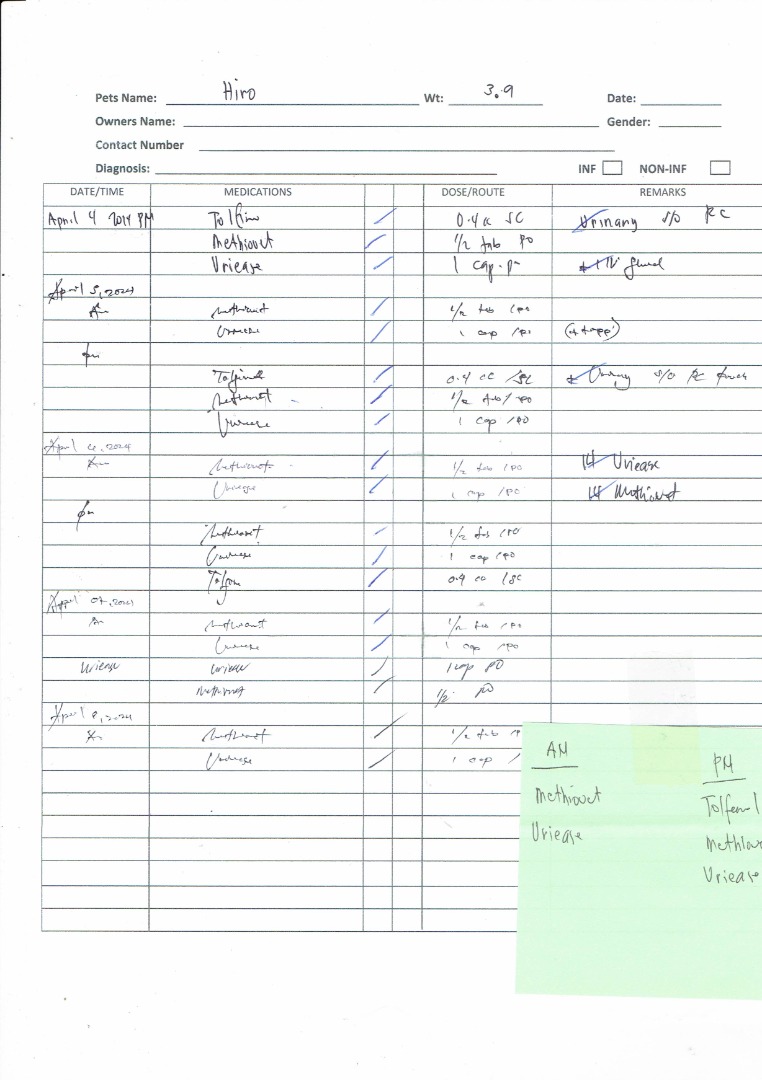 Pets Name: Hiro Wt: 3.9 Date:
Owners Name: Gender:
Contact Number
Diagnosis: INF NON-INF
DATE/TIME MEDICATIONS DOSE/ROUTE REMARKS
April 4 PM 0.4 cc SC Urinary s/o RC
Methiovet 1/2 tab PO
Uriease 1 cap
April 5, 2024
Am Methiovet 1/2 tab /PO
Uriease 1 cap /PO
pm
0.4 cc /SC Urinary S/O RC
Methiovet 1/2 tab/ PO
Uriease 1 cap /PO
April 6, 2024
Am Methiovet 1/2 tab /PO Uriease
Uriease 1 cap /PO Methiovet
pm
Methiovet 1/2 tab /PO
Uriease 1 cap /PO
0.4 cc /SC
April 07, 2024
Am Methiovet 1/2 tab /PO
Uriease 1 cap /PO
Uriease Uriease 1 cap PO
Methiovet 1/2 PO
April 8, 2024
Am Methiovet 1/2 tab
Uriease 1 cap /
AM
Methiovet
Uriease
PM
Tolfen
Methiov
Uriease